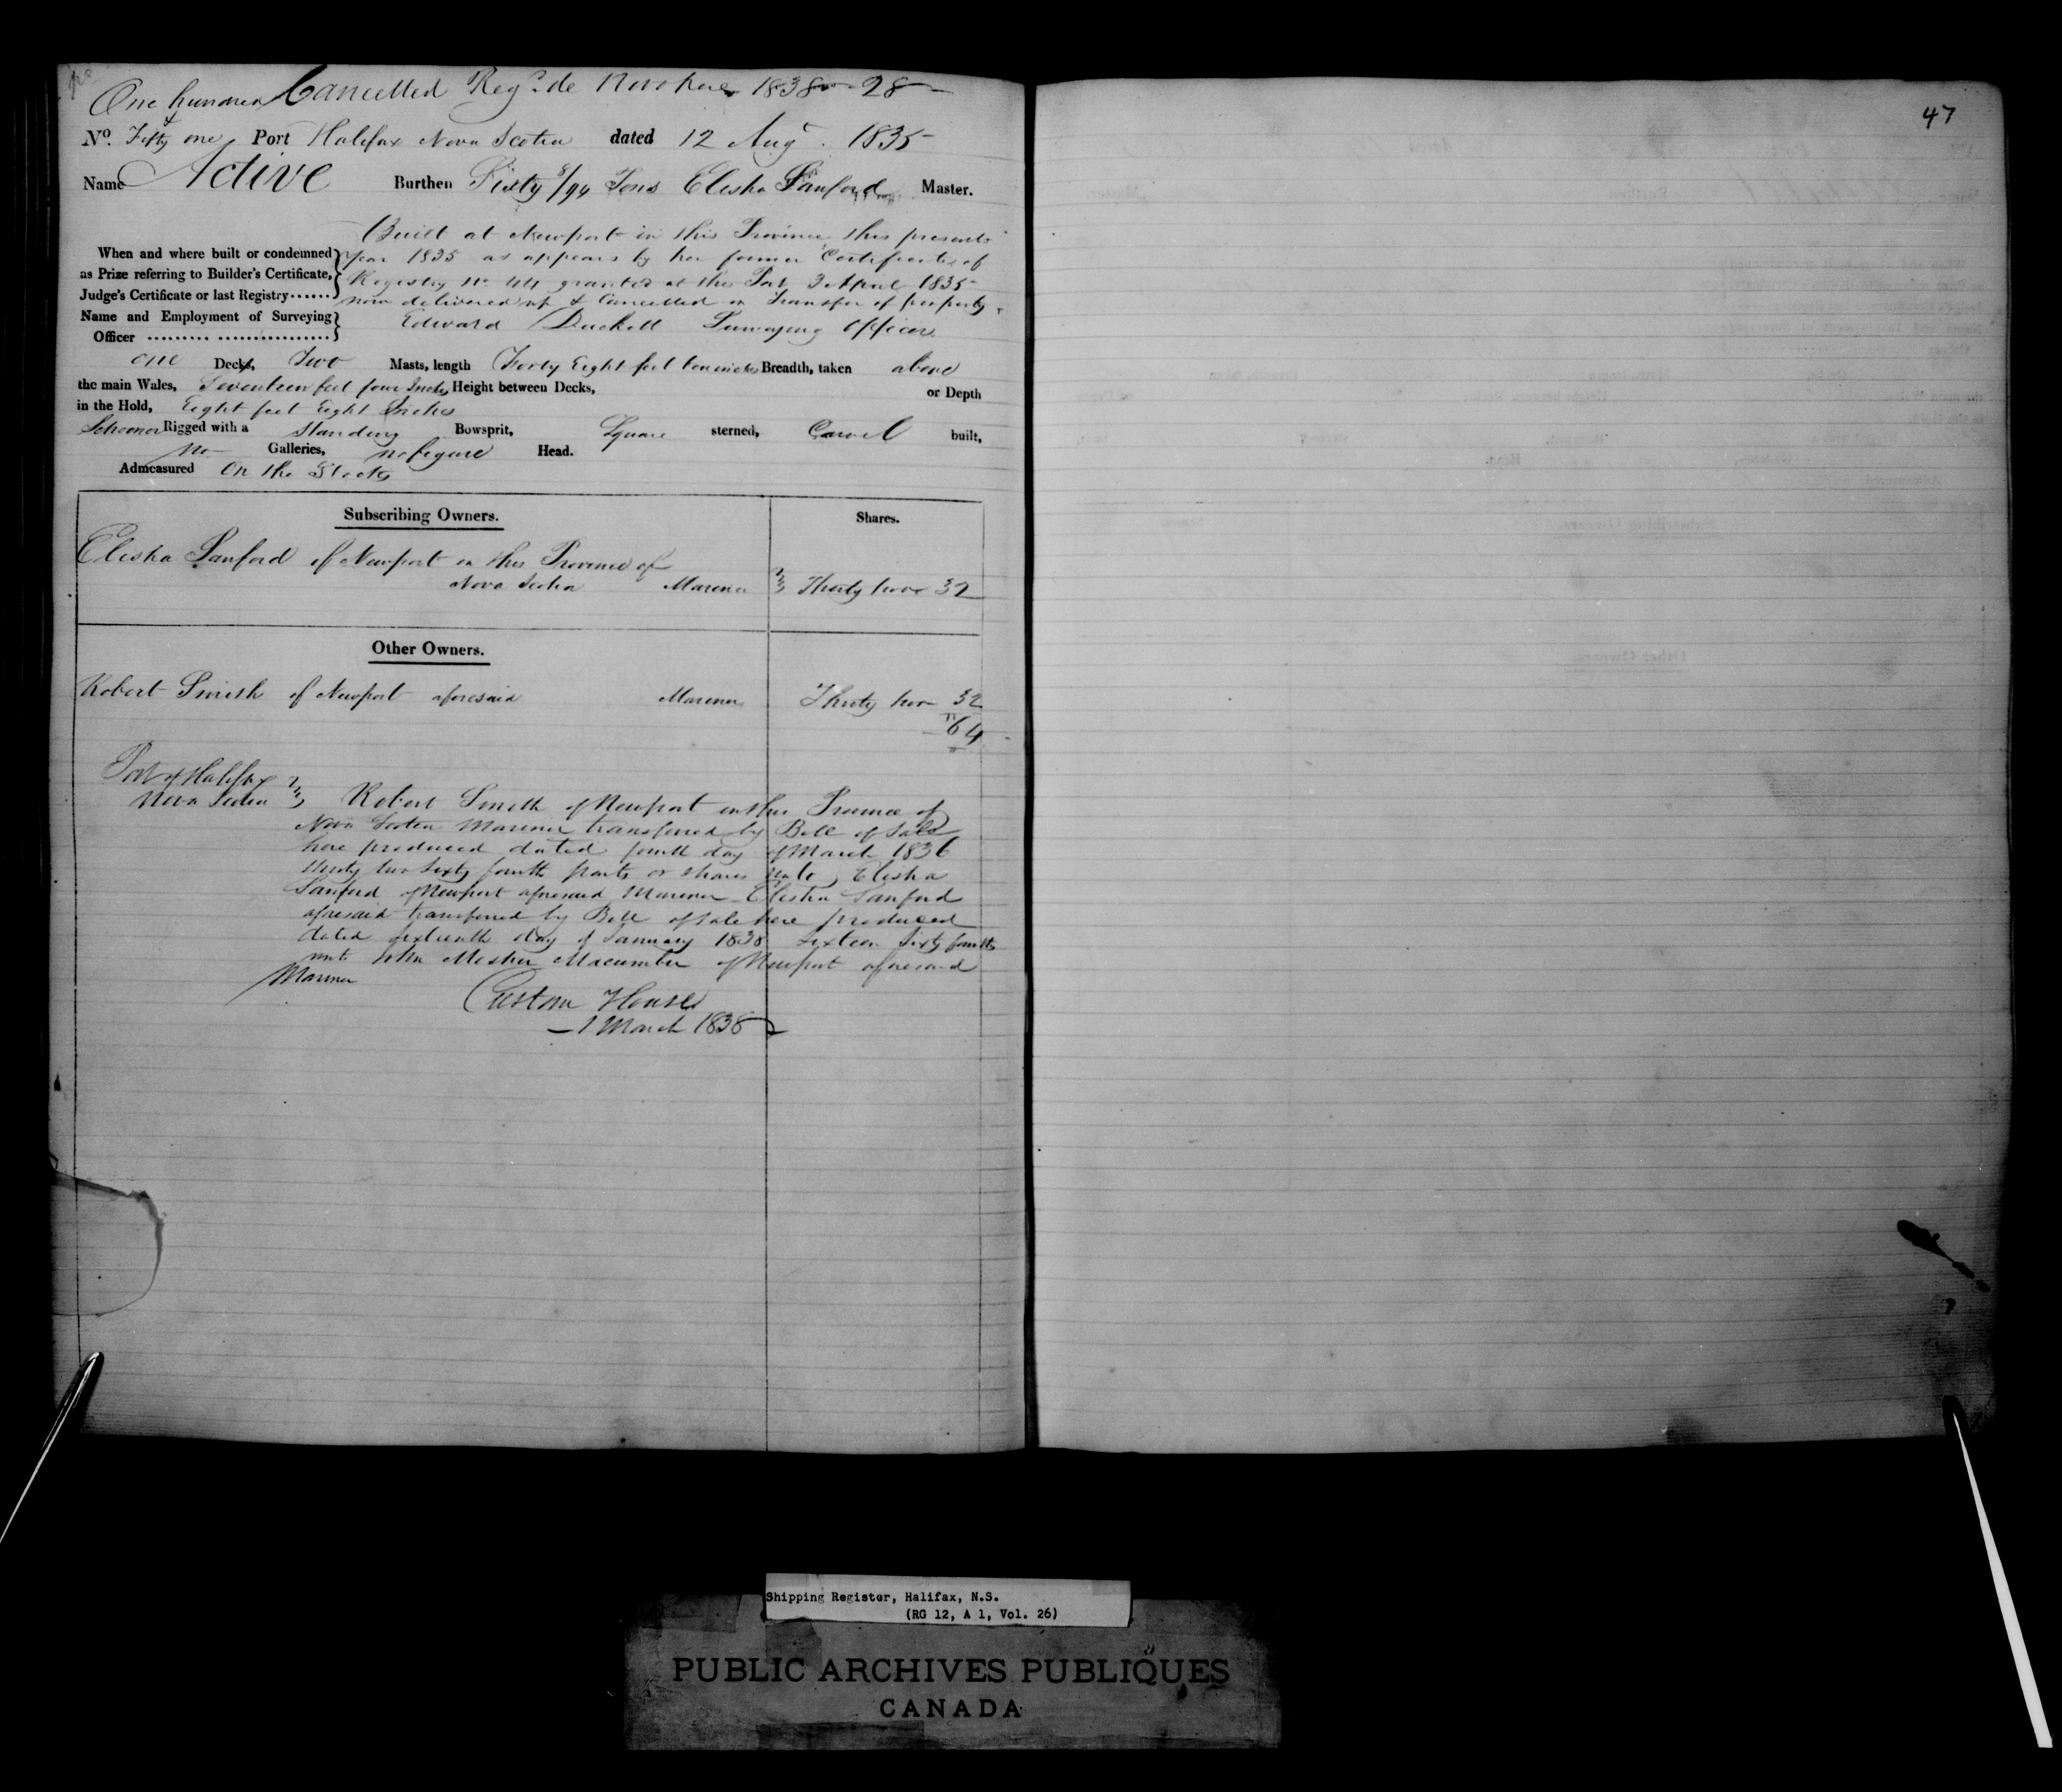 Cancelled Regd. de Novo here 1838 - 28
One hundred &
No. Fifty one Port Halifax Nova Scotia dated 12 Augt. 1835
Name Active Burthen Sixty 8/94 Tons Elisha Sanford Master.
Built at Newport in this Province this present
When and where built or condemned year 1835 as appears by her former Certificate of
as Prize referring to Builder's Certificate, Registry No 44 granted at this Port 3 April 1835
Judge's Certificate or last Registry...... now delivered up & Cancelled on Transfer of property.
Name and Employment of Surveying Edward Duckett Surveying Officer
Officer ......... ................
one Decks, Two Masts, length Forty Eight feet ten inches Breadth, taken above
the main Wales, Seventeen feet four Inches Height between Decks, or Depth
in the Hold, Eight feet Eight Inches
Schooner Rigged with a standing Bowsprit, Square sterned, Carvel built,
No Galleries, no figure Head.
Admeasured On the Stocks
Subscribing Owners. Shares.
Elisha Sanford of Newport in this Province of
Nova Scotia Mariner Thirty two 32
Other Owners.
Robert Smith of Newport aforesaid Mariner Thirty two 32
64
Port of Halifax
Nova Scotia Robert Smith of Newport in this Province of
Nova Scotia Mariner transferred by Bill of Sale
here produced dated fourth day of March 1836
thirty two sixty fourth parts or shares unto Elisha
Sanford of Newport aforesaid Mariner - Elisha Sanford
aforesaid transferred by Bill of Sale here produced
dated sixteenth day of January 1838 sixteen sixty fourths
unto John Mosher Macumber of Newport aforesaid
Mariner
Custom House
1 March 1838
47
Shipping Register, Halifax, N.S.
(RG 12, A 1, Vol. 26)
PUBLIC ARCHIVES PUBLIQUES
CANADA